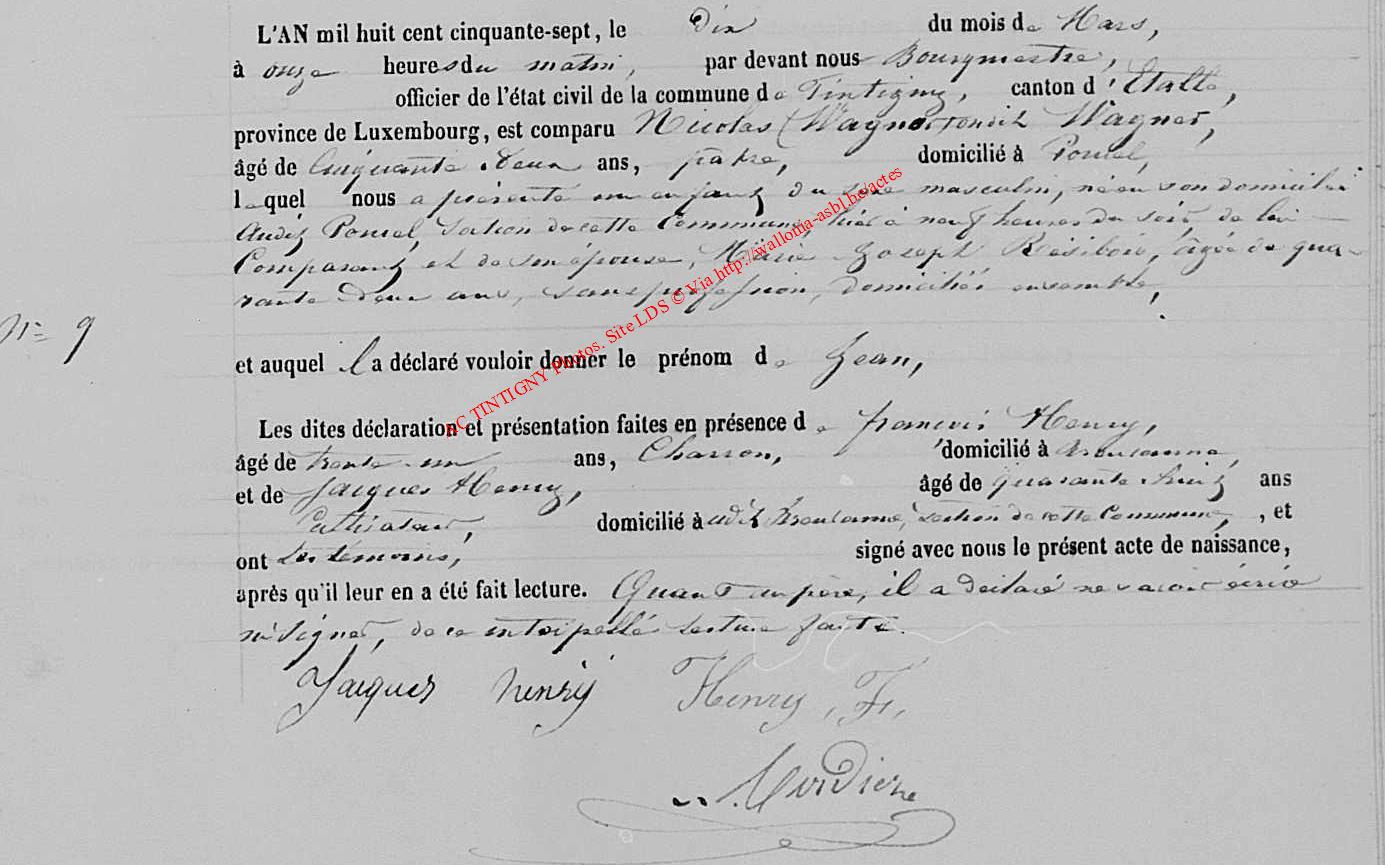 L'AN mil huit cent cinquante-sept, le dix du mois de Mars,
à onze heures du matin, par devant nous Bourgmestre,
officier de l'état civil de la commune de Tintigny, canton d'Etalle,
province de Luxembourg, est comparu Nicolas Wagner Wagner,
âgé de Cinquante deux ans, pâtre, domicilié à Poncel,
lequel nous a présenté un enfant du sexe masculin, né en son domicile
audit Poncel, Section de cette Commune, hier à neuf heures du soir, de lui
Comparant et de son épouse, Marie Joseph Résibois, âgée de qua-
rante deux ans, sans profession, domiciliés ensemble,
N° 9
et auquel il a déclaré vouloir donner le prénom de Jean,
Les dites déclaration et présentation faites en présence de françois Henry,
âgé de trente-un ans, Charron, domicilié à
et de Jacques Henry, âgé de quarante huit ans
Cultivateur, domicilié à udit section de cette Commune, , et
ont les témoins, signé avec nous le présent acte de naissance,
après qu'il leur en a été fait lecture. Quant au père, il a déclaré ne savoir écrire
ni signer, de ce interpellé lecture faite.
Jacques henry Henry, F,
AC TINTIGNY Photos. Site LDS © Via http://wallonia-asbl.be/actes